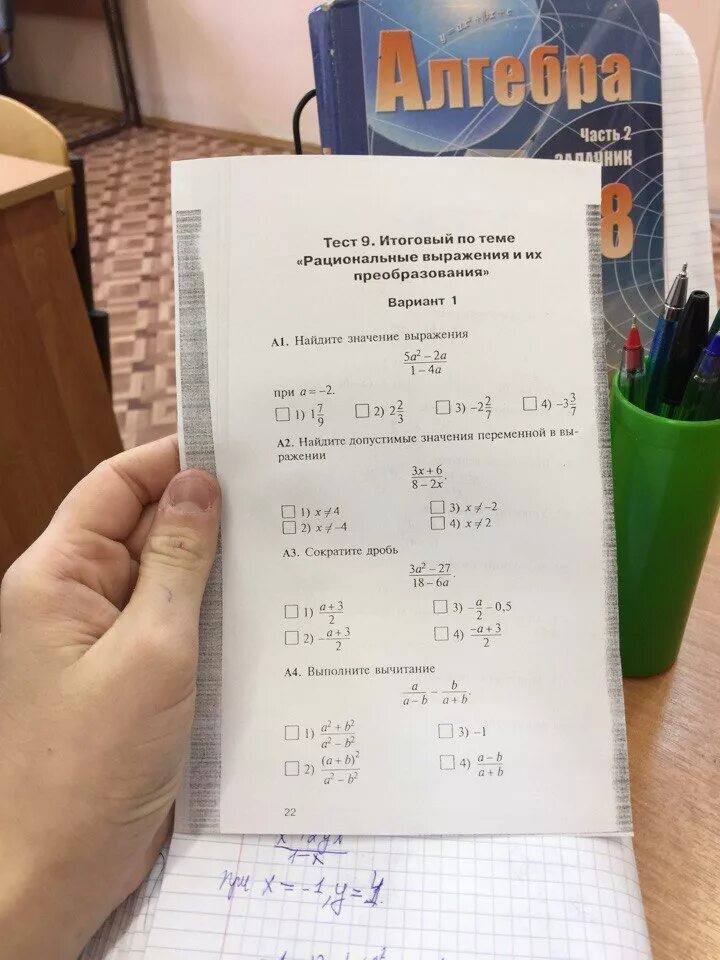 y = ax² + bx + c
Алгебра
Часть 2
ЗАДАЧНИК
8
Тест 9. Итоговый по теме
«Рациональные выражения и их
преобразования»
Вариант 1
А1. Найдите значение выражения
(5a² – 2a)/(1 – 4a)
при a = –2.
1) 1 7/9 2) 2 2/3 3) –2 2/7 4) –3 3/7
А2. Найдите допустимые значения переменной в вы-
ражении
(3x + 6)/(8 – 2x).
1) x ≠ 4 3) x ≠ –2
2) x ≠ –4 4) x ≠ 2
А3. Сократите дробь
(3a² – 27)/(18 – 6a).
1) (a + 3)/2 3) –a/2 – 0,5
2) –(a + 3)/2 4) (–a + 3)/2
А4. Выполните вычитание
a/(a – b) – b/(a + b).
1) (a² + b²)/(a² – b²) 3) –1
2) (a + b)²/(a² – b²) 4) (a – b)/(a + b)
22
1–x
при x = –1, y =